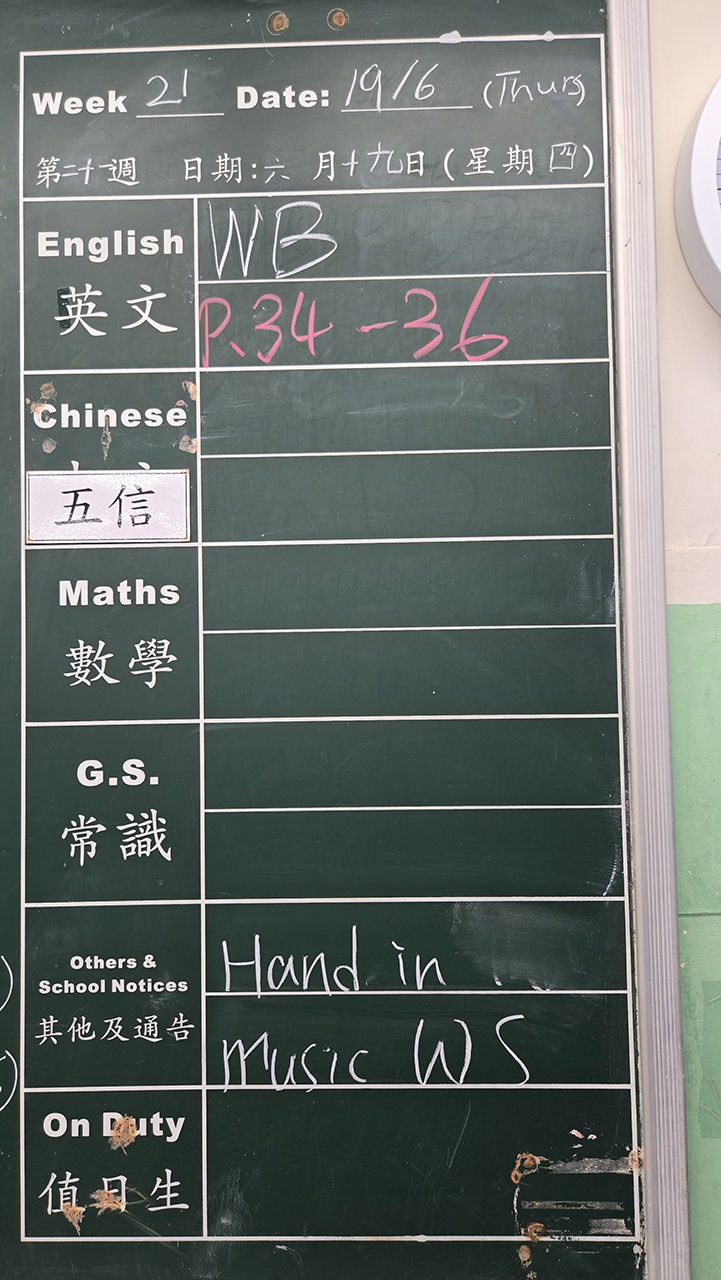 Week 21 Date: 19/6 (Thurs)
第二十一週 日期:六月十九日(星期四)
English WB
英文 P.34-36
Chinese
五信
Maths
數學
G.S.
常識
Others &
School Notices
其他及通告
Hand in
music WS
On Duty
值日生